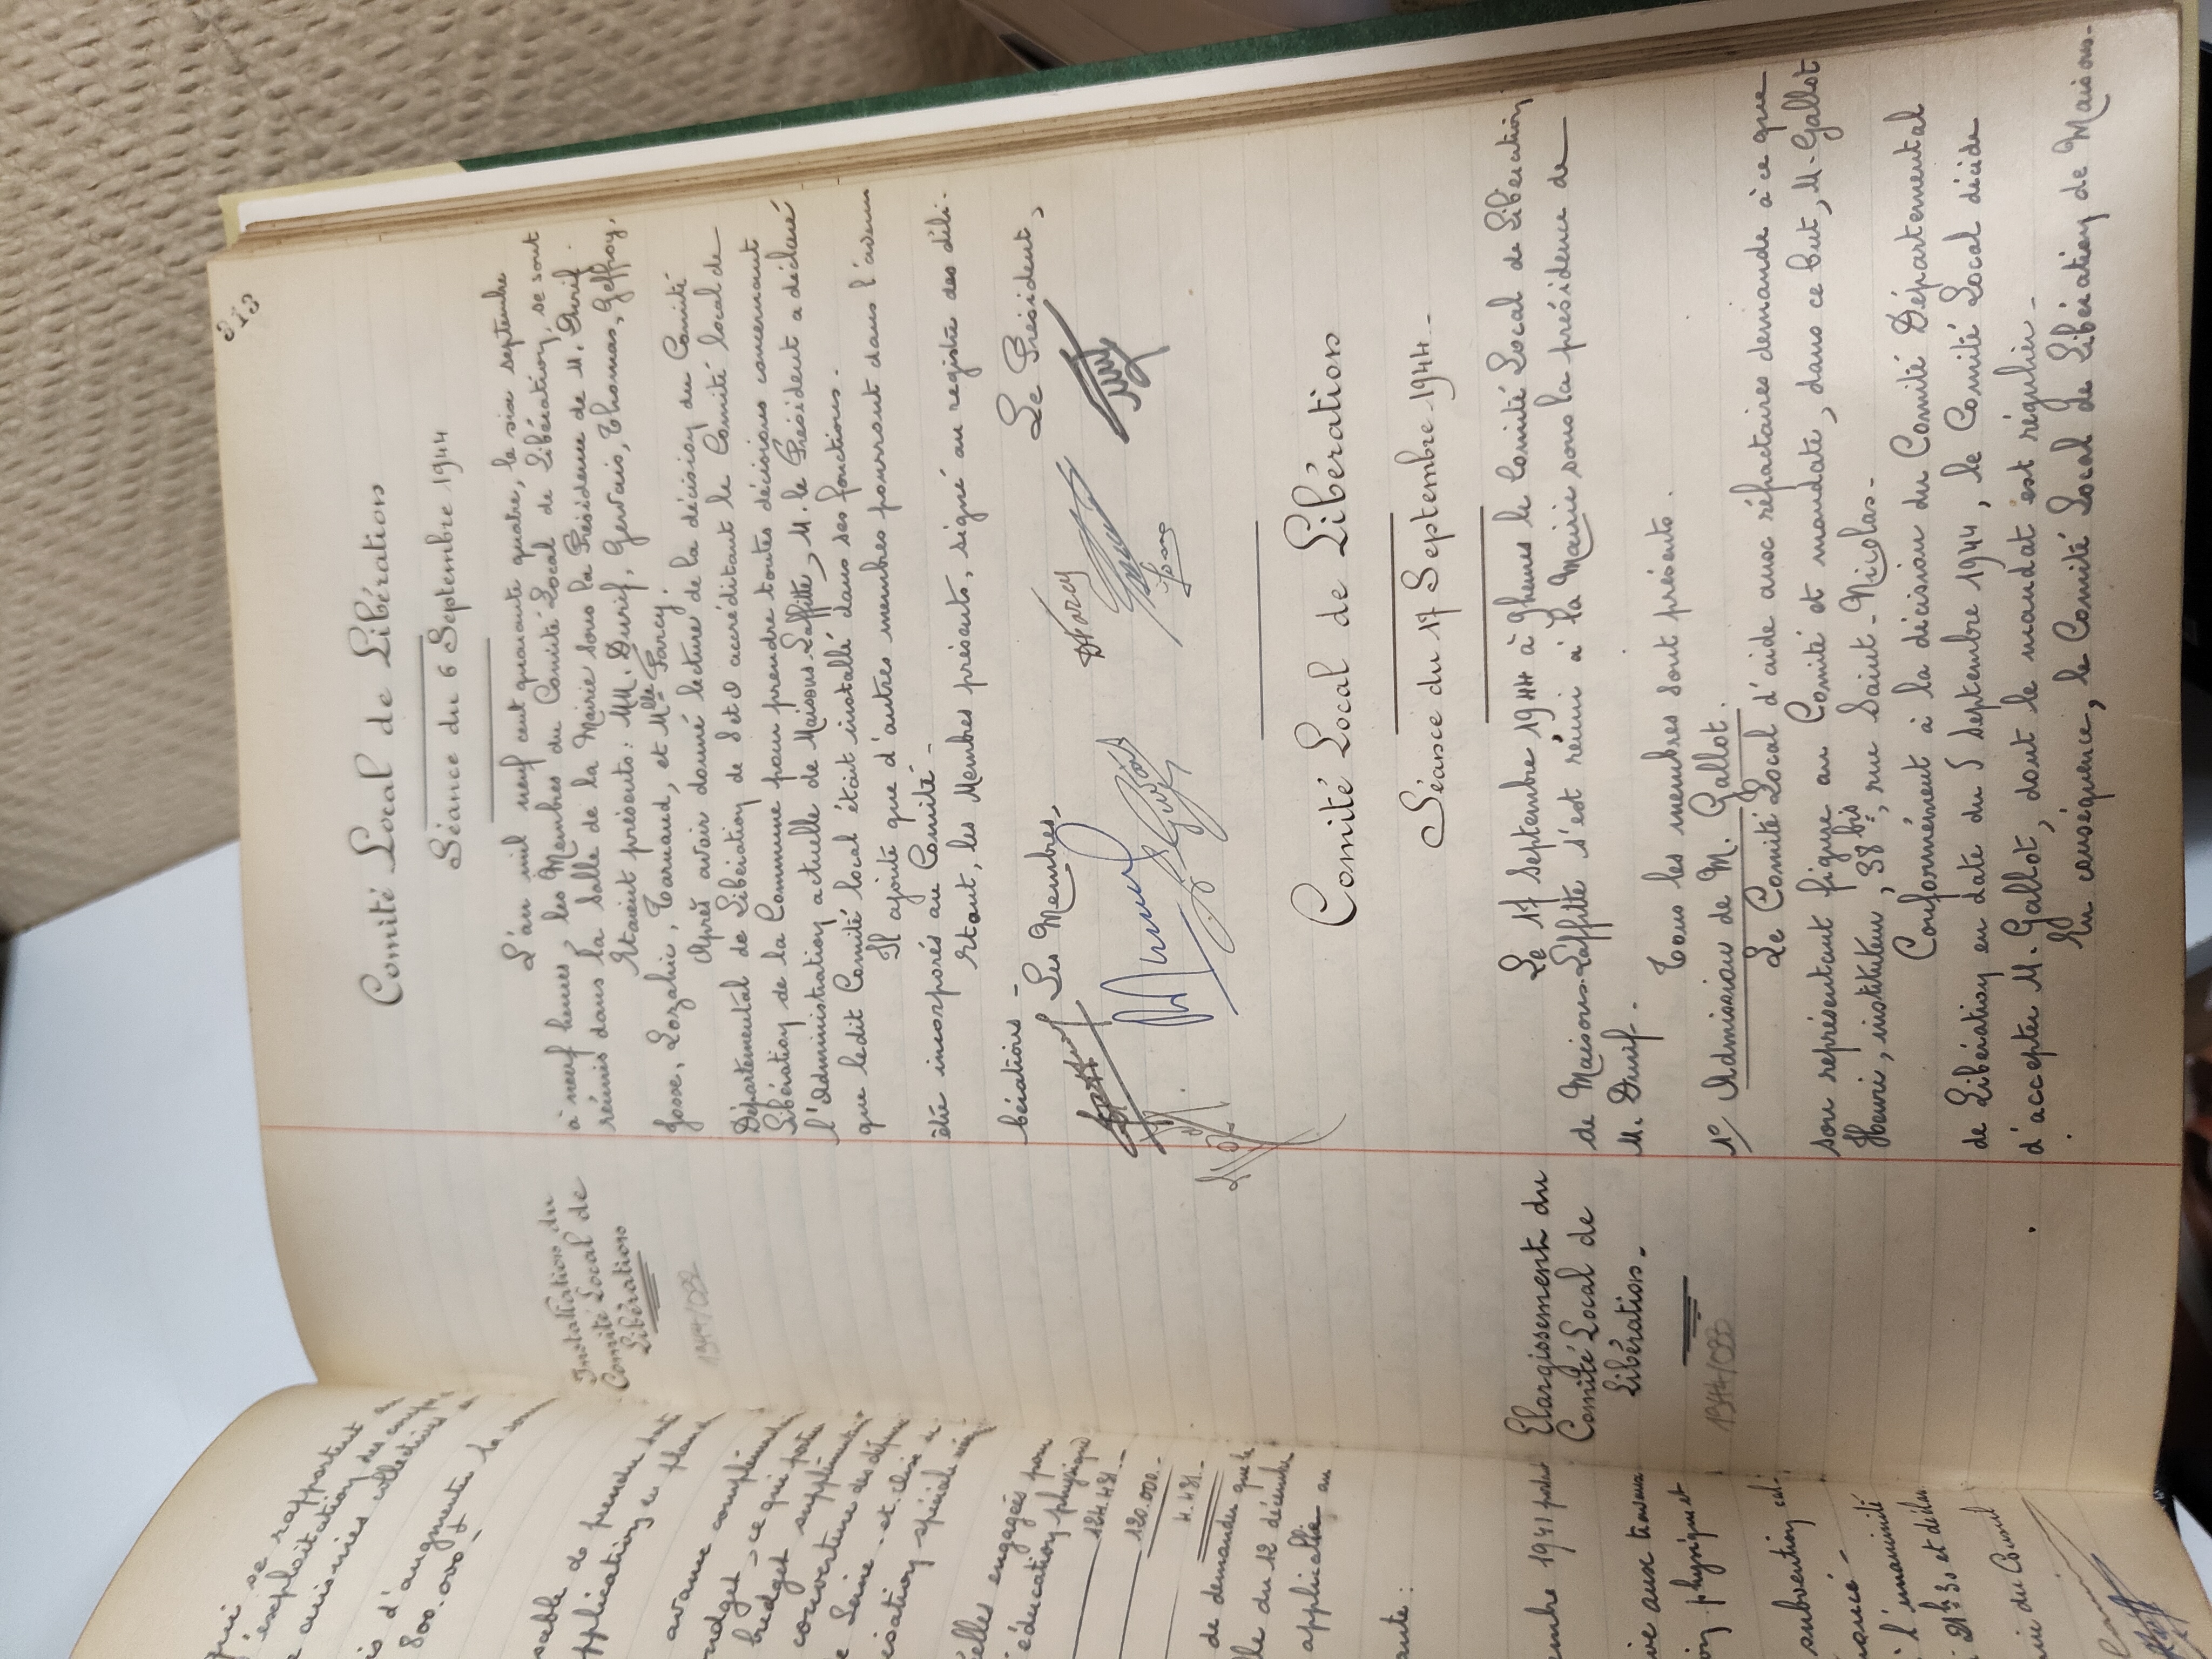 Comité Local de Libération
Séance du 6 Septembre 1944
Installation du
Comité Local de
Libération
1944/022
L'an mil neuf cent quarante quatre, le six septembre
à neuf heures, les Membres du Comité Local de Libération, se sont
réunis dans la salle de la Mairie sous la Présidence de M. Durif.
Etaient présents: MM. Durif, Gervais, Thomas, Geffroy,
Josse, Lozahic, Tarnaud, et Mlle Farcy.
Après avoir donné lecture de la décision du Comité
Départemental de Libération de S et O accréditant le Comité local de
Libération de la Commune pour prendre toutes décisions concernant
l'Administration actuelle de Maisons-Laffitte, M. le Président a déclaré
que ledit Comité local était installé dans ses fonctions.
Il ajoute que d'autres membres pourront dans l'avenir
être incorporés au Comité.
Etant, les Membres présents, signé au registre des déli-
bérations - Les Membres, Le Président,
DFarcy
Comité Local de Libération
Séance du 17 Septembre 1944.
Elargissement du
Comité Local de
Libération.
1944/023
Le 17 Septembre 1944 à 9 heures le Comité Local de Libération
de Maisons-Laffitte s'est réuni à la Mairie sous la présidence de
M. Durif.
Tous les membres sont présents.
1°/ Admission de M. Gallot.
Le Comité Local d'aide aux réfractaires demande à ce que
son représentant figure au Comité et mandate, dans ce but, M. Gallot
Henri, instituteur, 38 bis, rue Saint-Nicolas.
Conformément à la décision du Comité Départemental
de Libération en date du 5 septembre 1944, le Comité Local décide
d'accepter M. Gallot, dont le mandat est régulier.
En conséquence, le Comité Local de Libération de Maisons-
qui se rapportent
exploitation des
d'augmenter la
800.000
de prendre
application
avance
budget - ce qui
budget
couverture des
Seine-et-Oise
spéciale
engagées pour
éducation physique
124.481.-
120.000.-
4.481.-
de demander que le
du 12 décembre
applicable au
1941
aux travaux
physique et
subvention
l'unanimité
du Conseil